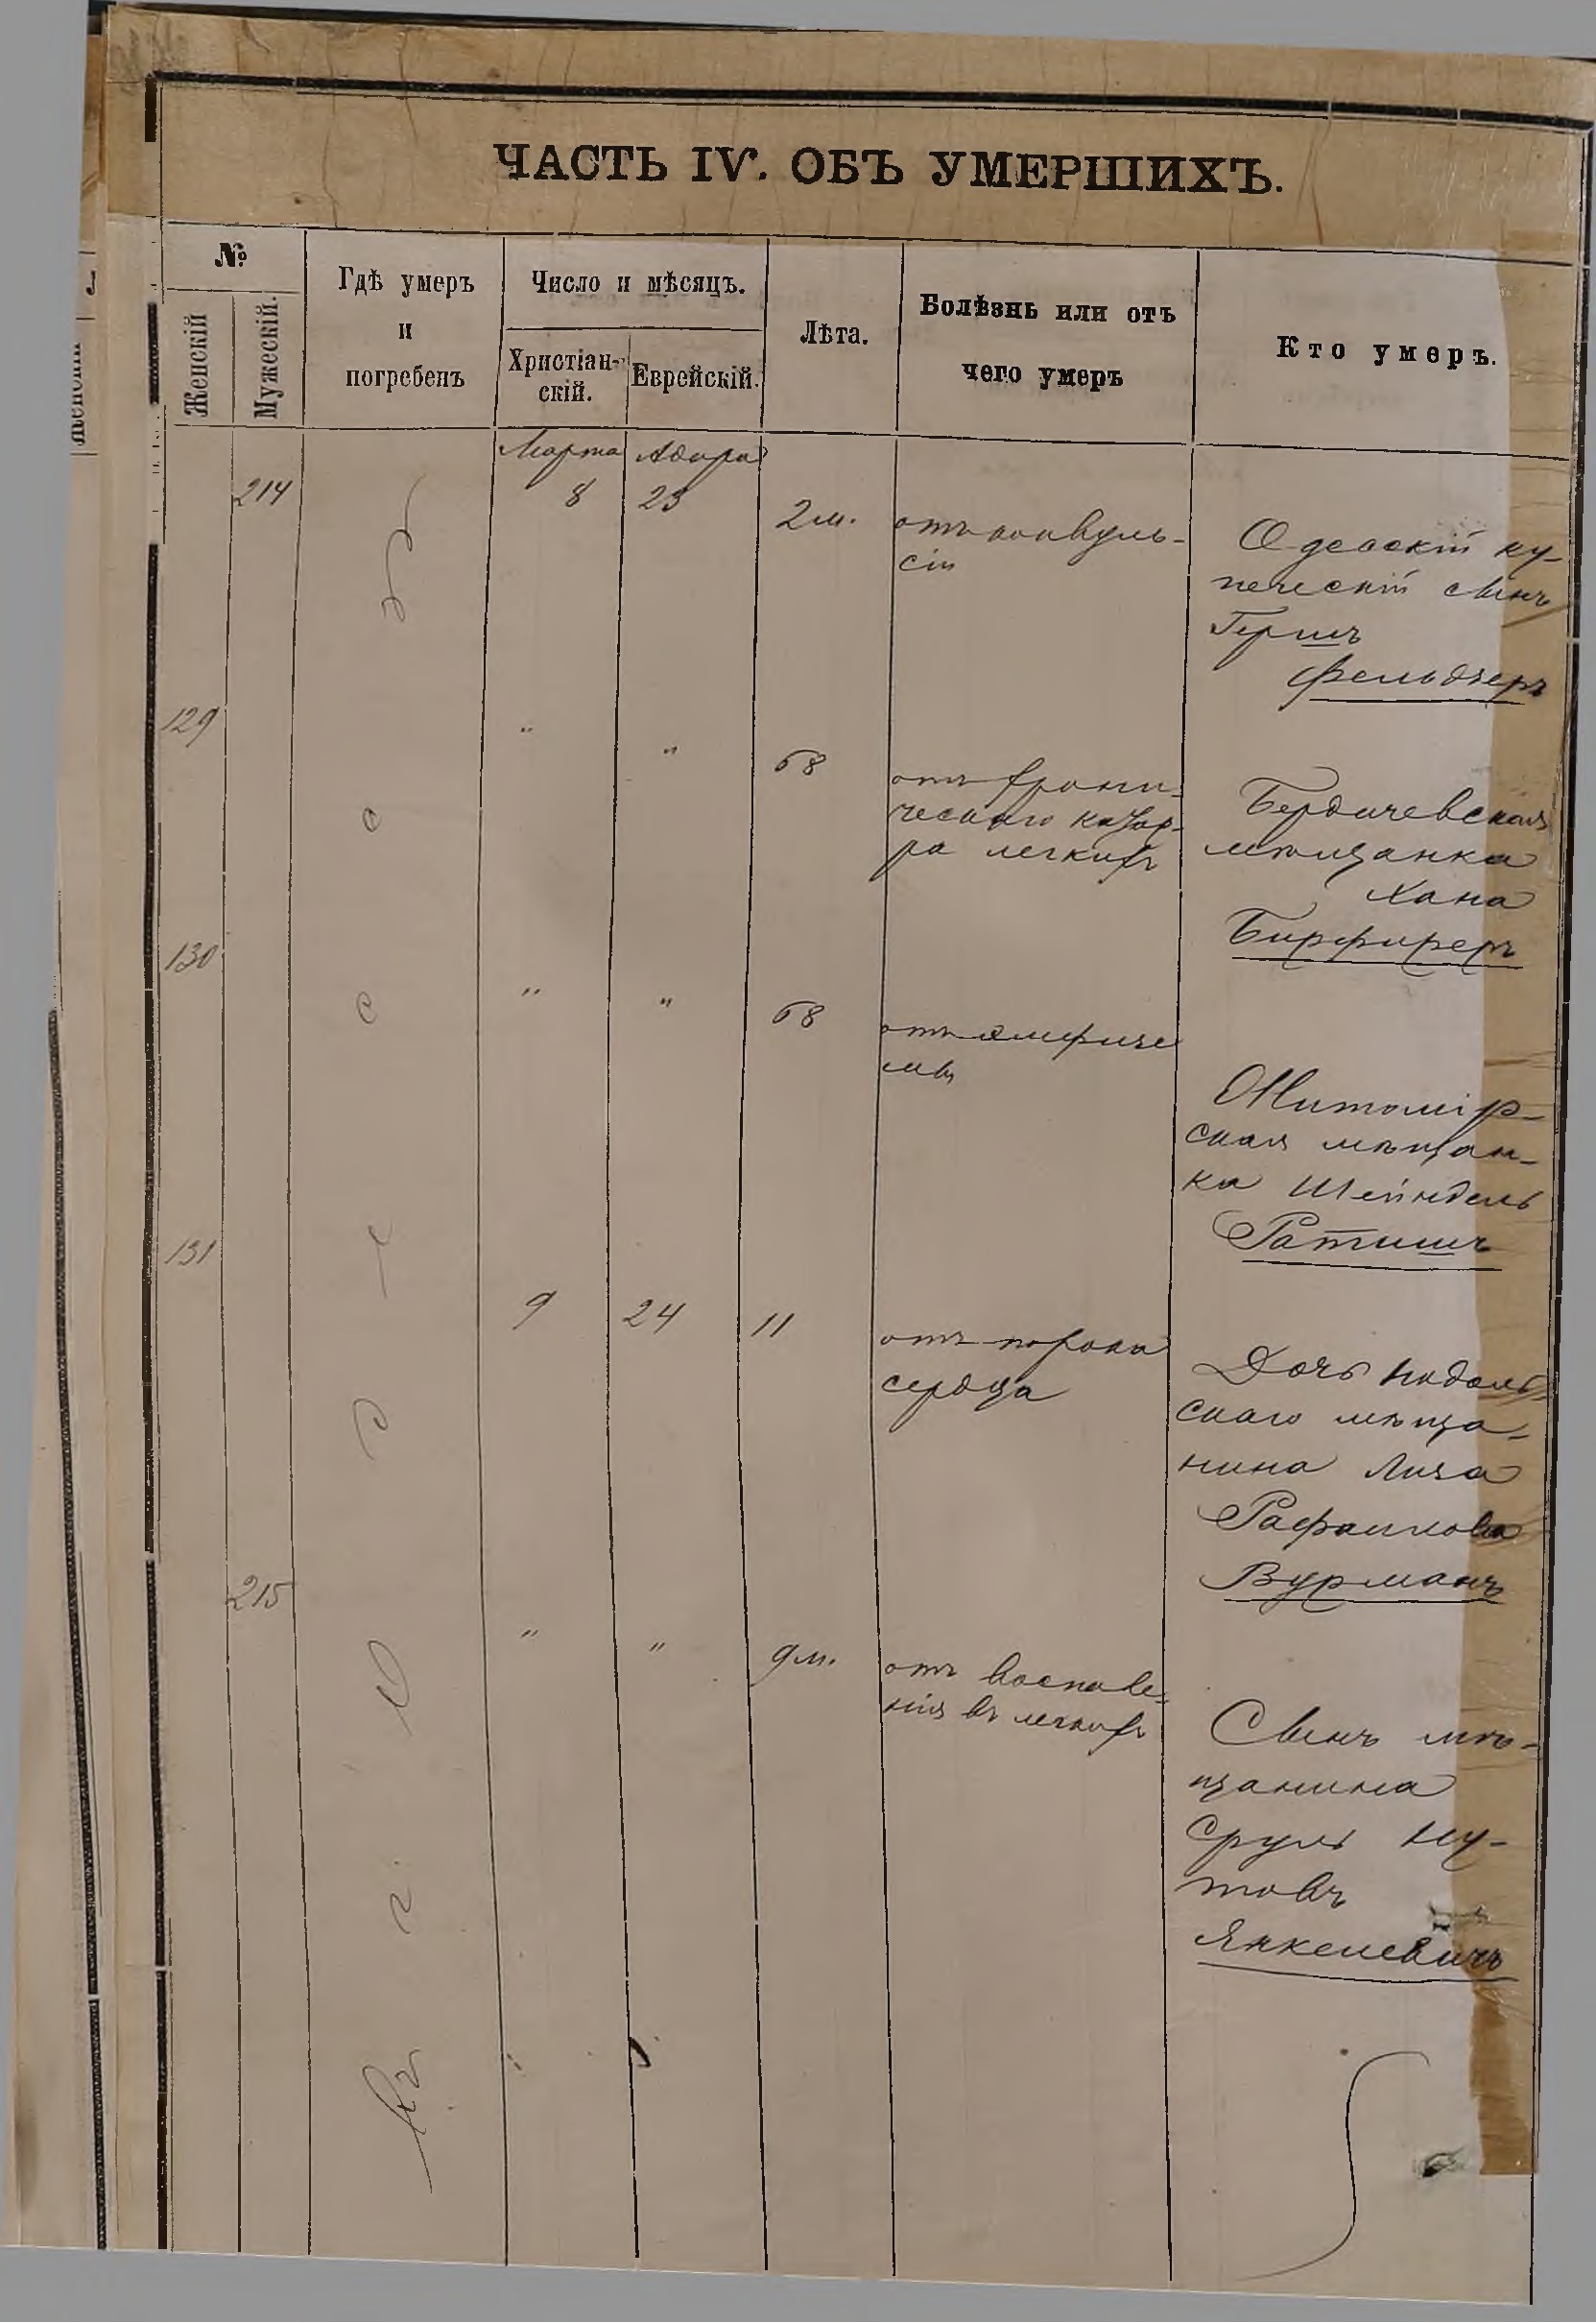 ЧАСТЬ IV. ОБЪ УМЕРШИХЪ.
№
Женскій
Мужескій.
Гдѣ умеръ
и
погребенъ
Число и мѣсяцъ.
Христіан-
скій.
Еврейскій.
Лѣта.
Болѣзнь или отъ
чего умеръ
Кто умеръ.
Марта Адара
214
8 23
2 м.
отъ конвуль-
сіи
Одесскій ку-
печескій сынъ
Гершъ
Фельдзеръ
129
" "
68
отъ хрони-
ческаго катар-
ра легкихъ
Бердичевская
мѣщанка
Хана
Бирфиреръ
130
" "
68
отъ эмфизе
мы
Житомір-
ская мѣщан-
ка Шейндель
Ратишъ
131
9 24
11
отъ порока
сердца
Дочь подоль
скаго мѣща-
нина Лиза
Вурманъ
215
" "
9 м.
отъ воспале-
нія въ легкихъ
Сынъ мѣ-
щанина
Сруль Ну-
товъ
Янкелевичъ